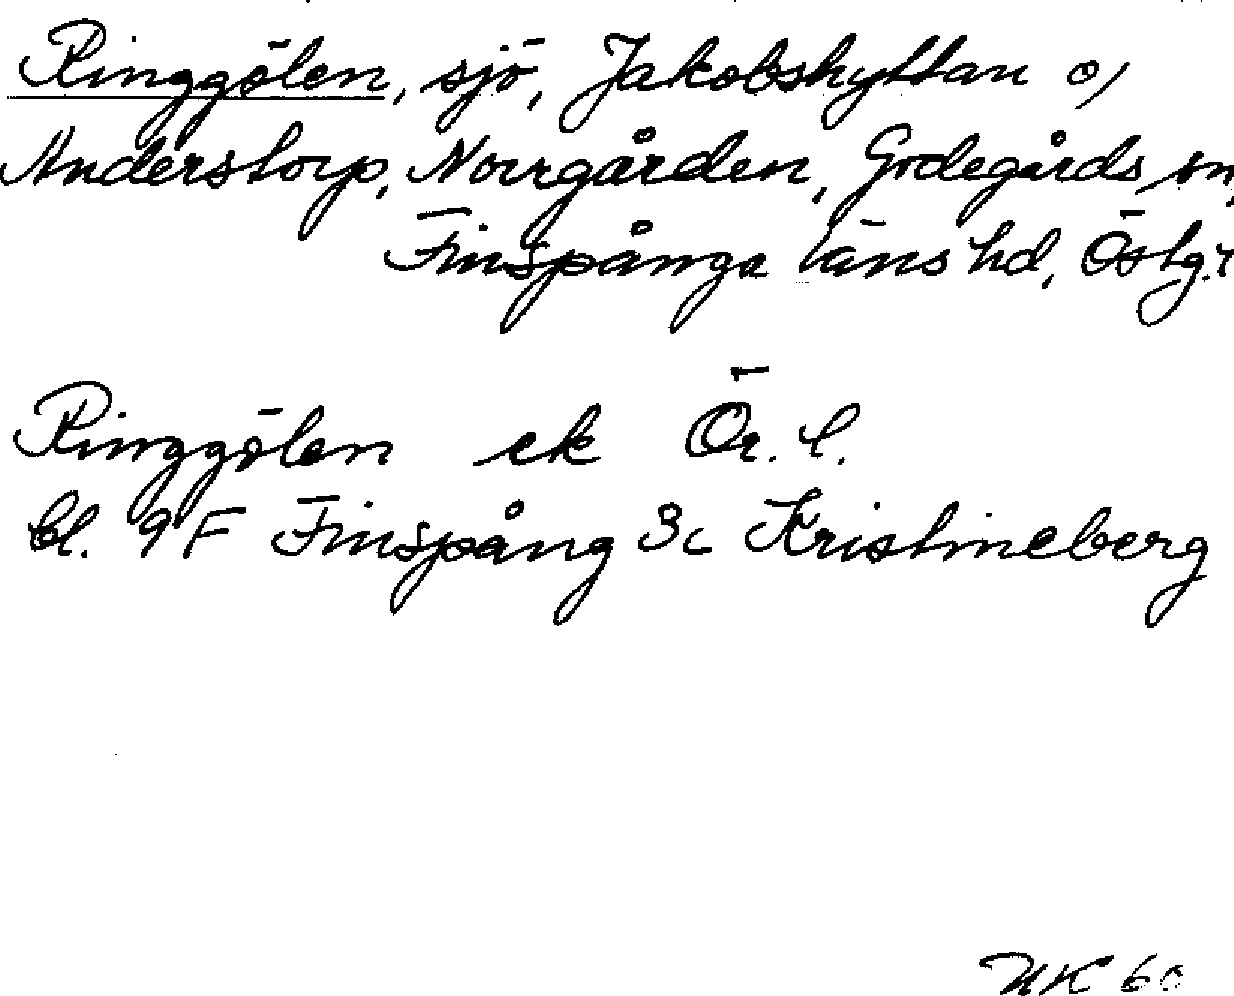 Ringgölen, sjö, Jakobshyttan o,
Anderstorp, Norrgården, Godegårds sn,
Finspånga läns hd, Östg.
Ringgölen ek Ör. l.
bl. 9F Finspång 3c Kristineberg
NK 60